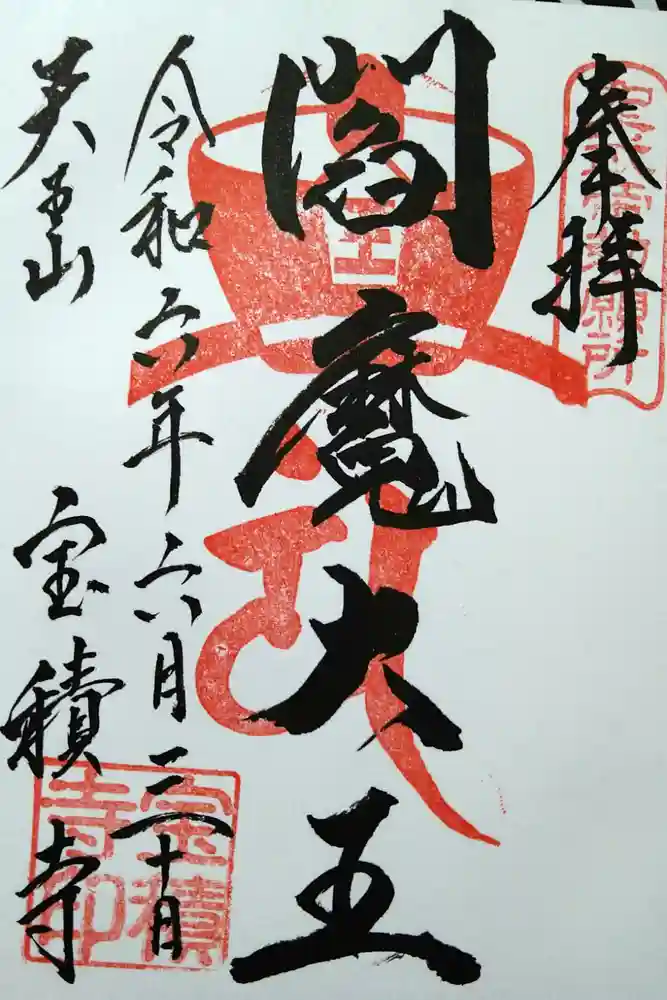 奉拝
閻魔大王
令和六年六月三十日
天王山
宝積寺
宝積
寺印